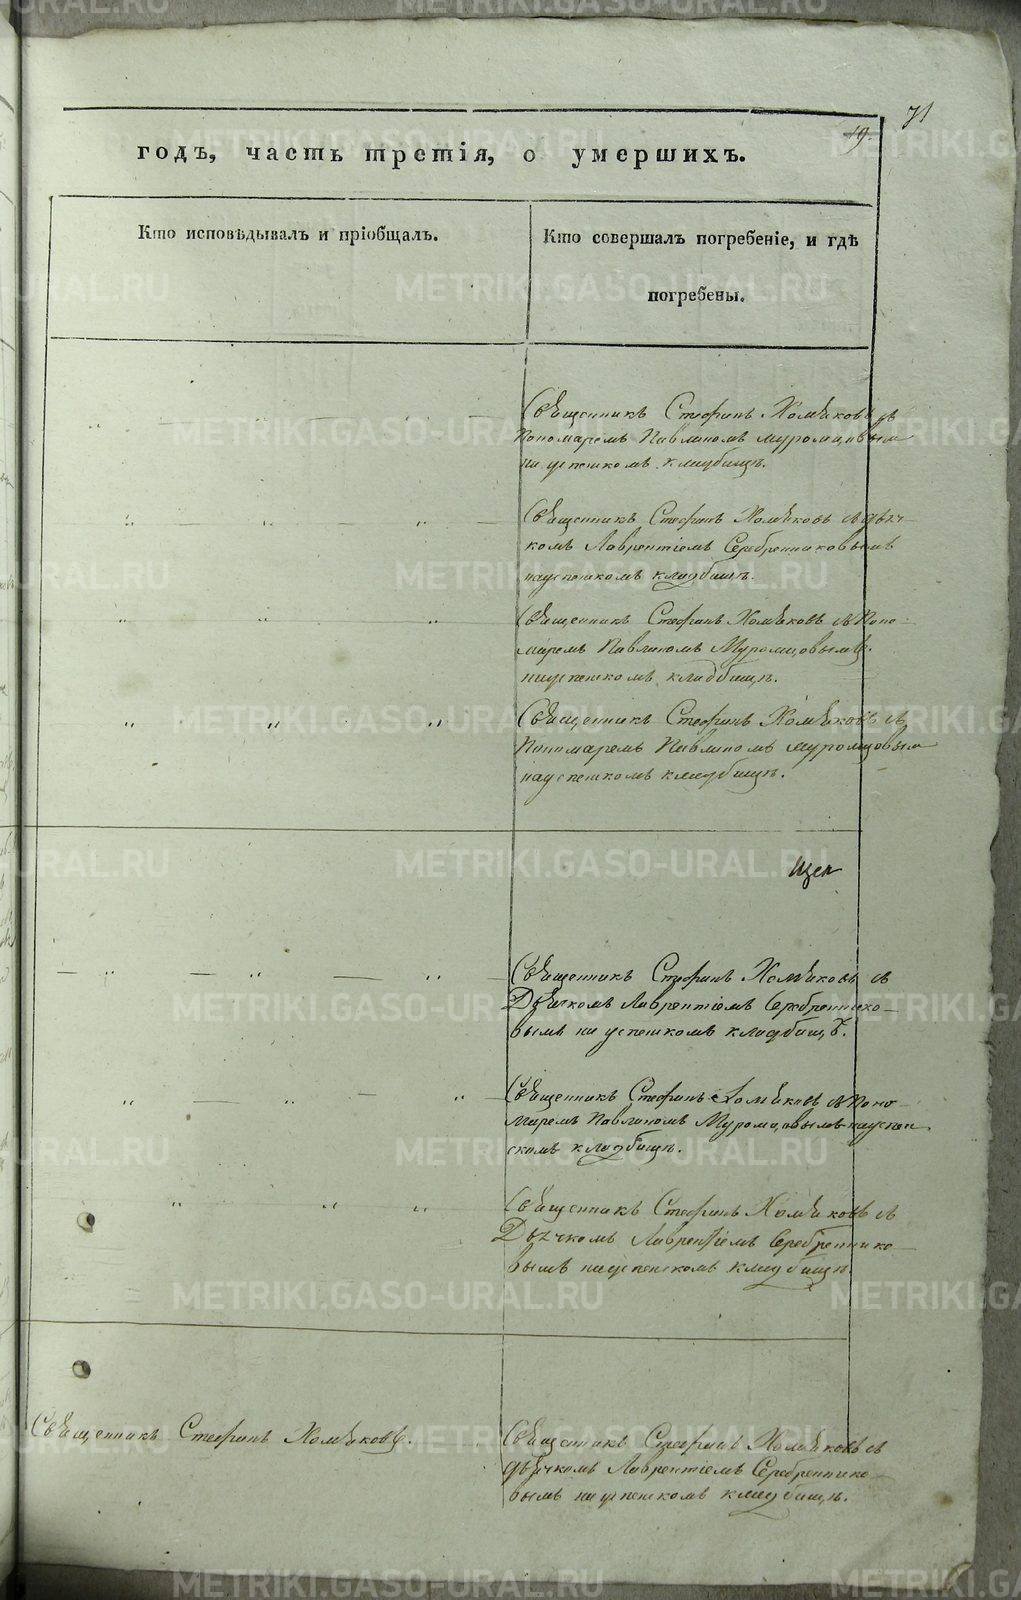 71
19.
годъ, часть третія, о умершихъ.
Кто исповѣдывалъ и пріобщалъ.
Кто совершалъ погребеніе, и гдѣ
погребены.
Священникъ Стефанъ Хомяковъ съ
Пономаремъ Павлиномъ Муромцовым
на успенском кладбищѣ.
Священникъ Стефанъ Хомяковъ съ дьяч-
комъ Лаврентіемъ Серебренниковымъ
на успенскомъ кладбищѣ.
Священникъ Стефанъ Хомяковъ съ Поно-
маремъ Павлиномъ Муромцовымъ
на успенскомъ кладбищѣ.
Священникъ Стефанъ Хомяковъ съ
Пономаремъ Павлиномъ Муромцовым
на успенскомъ кладбищѣ.
Священникъ Стефанъ Хомяковъ съ
Дьячкомъ Лаврентіемъ Серебреннико-
вымъ на успенскомъ кладбищѣ.
Священникъ Стефанъ Хомяковъ съ Поно-
маремъ Павлиномъ Муромцовымъ на успен
скомъ кладбищѣ.
Священникъ Стефанъ Хомяковъ съ
Дьячкомъ Лаврентіемъ Серебреннико-
вымъ на успенскомъ кладбищѣ.
Священникъ Стефанъ Хомяковъ.
Священникъ Стефанъ Хомяковъ съ
дьячкомъ Лаврентіемъ Серебреннико-
вымъ на успенскомъ кладбищѣ.
METRIKI.GASO-URAL.RU